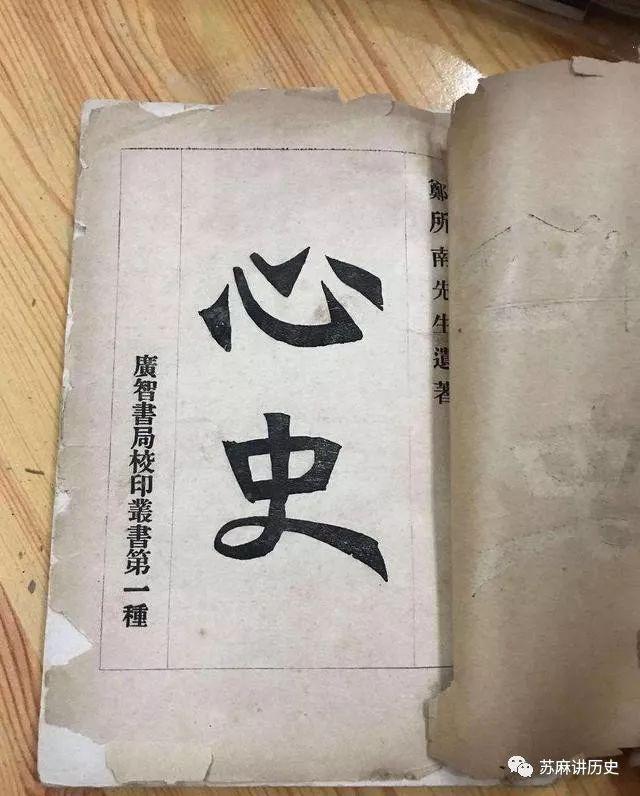 鄭所南先生遺著
心史
廣智書局校印叢書第一種
苏麻讲历史